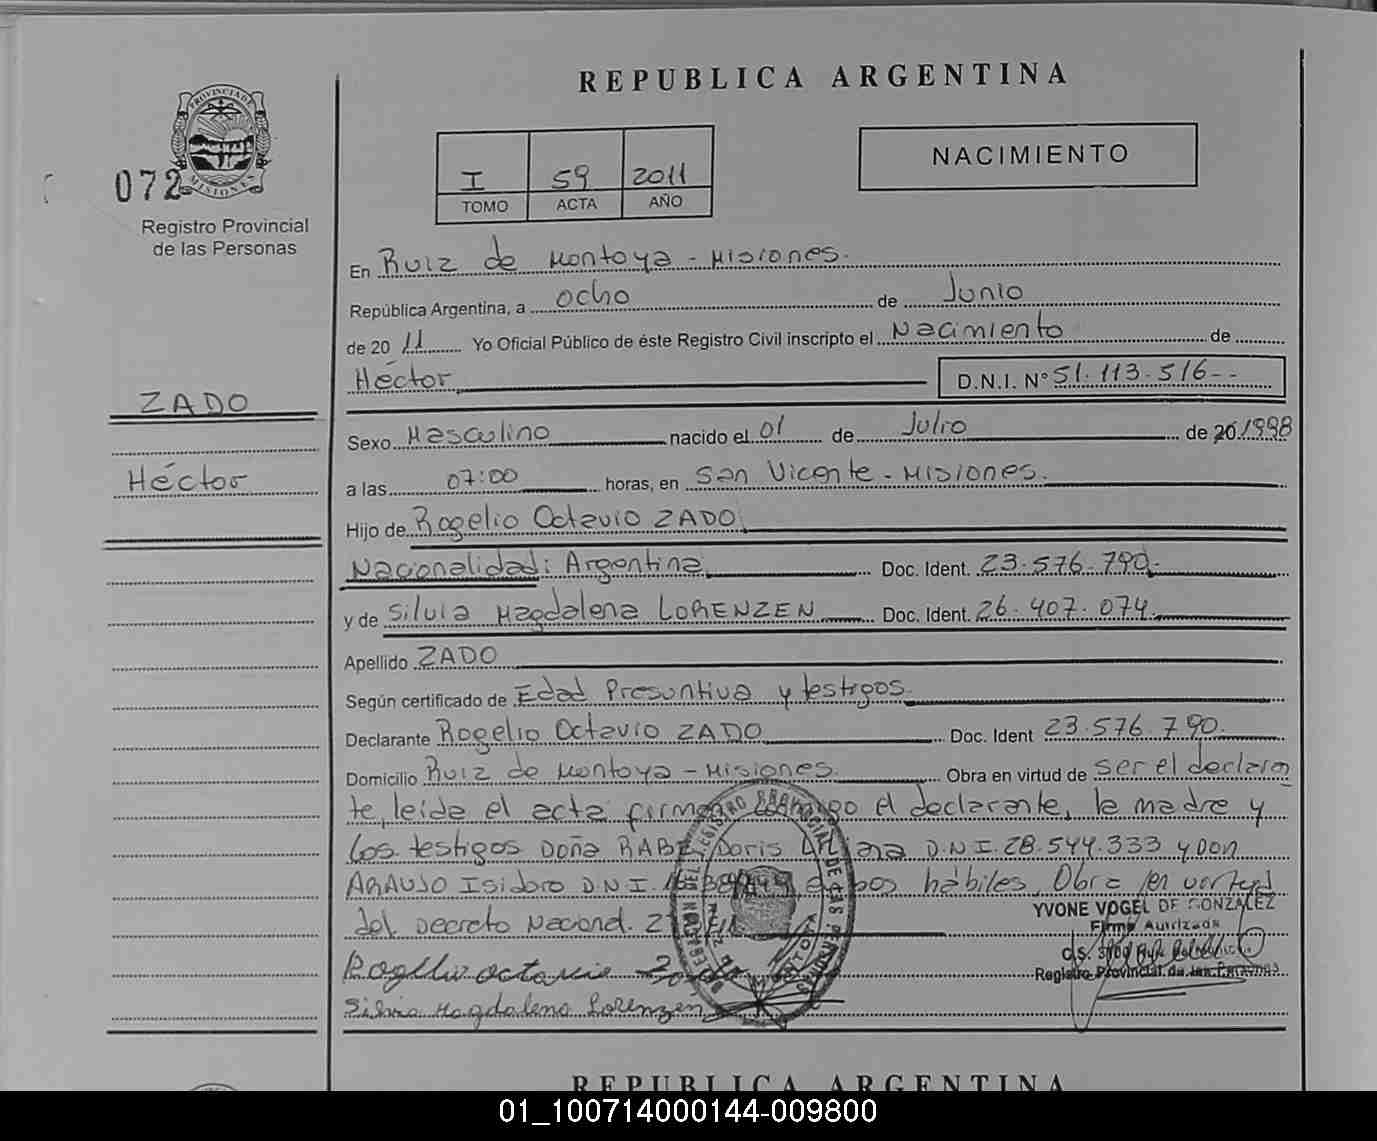 REPUBLICA ARGENTINA
PROVINCIA DE
MISIONES
072
Registro Provincial
de las Personas
NACIMIENTO
I 59 2011
TOMO ACTA AÑO
En Ruiz de Montoya - Misiones.
República Argentina, a ocho de Junio
de 20 11 Yo Oficial Público de éste Registro Civil inscripto el Nacimiento de
Héctor D.N.I. Nº 51.113.516--
ZADO
Héctor
Sexo Masculino nacido el 01 de Julio de 20 1998
a las 07:00 horas, en San Vicente - Misiones.
Hijo de Rogelio Octavio ZADO
Nacionalidad: Argentina Doc. Ident. 23.576.790-
y de Silvia Magdalena LORENZEN Doc. Ident. 26.407.074.
Apellido ZADO
Según certificado de Edad Presuntiva y testigos.
Declarante Rogelio Octavio ZADO Doc. Ident 23.576.790.
Domicilio Ruiz de Montoya - Misiones. Obra en virtud de ser el declaran
te, leída el acta firman conmigo el declarante, la madre y
los testigos Doña RABE, Doris D.N.I. 28.544.333 y Don
ARAUJO Isidoro D.N.I. hábiles. Obra en virtud
del Decreto Nacional.
YVONE VOGEL DE GONZALEZ
Firma Autorizada
Registro Provincial de las Personas
Rogelio octavio Zado
Silvia Magdalena Lorenzen
REPUBLICA ARGENTINA
01_100714000144-009800